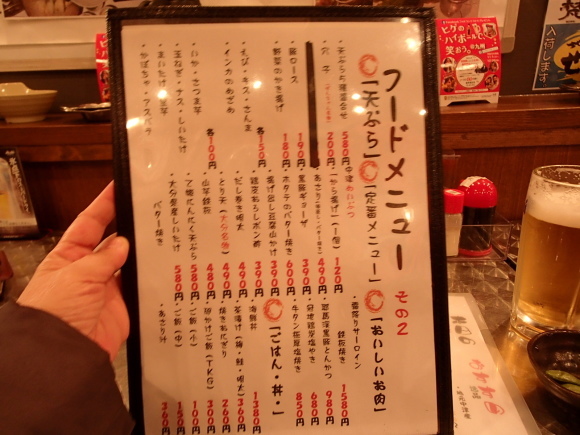 フードメニュー その2
「天ぷら」
天ぷら5種盛合せ 580円
穴子 200円
豚ロース 190円
野菜のかき揚げ 180円
えび・キス・さんま 各150円
イカ・さつま芋
玉ねぎ・ナス・しいたけ 各100円
まいたけ・里芋
かぼちゃ・アスパラ
「定番メニュー」
中津から揚げ(1個) 120円
黒豚ギョーザ 390円
ホタテのバター焼き 600円
揚げ出し豆腐山かけ 390円
銀皮おろしポン酢 390円
だし巻き明太 490円
とり天(大分名物) 490円
山芋鉄板 480円
丁稚にんにく天ぷら 580円
大分県産しいたけ
バター焼き 580円
「おいしいお肉」
霜降りサーロイン
鉄板焼き 1580円
黒豚とんかつ 980円
塩やき 680円
牛タン塩焼 850円
「ごはん・丼・」
海鮮丼 1380円
茶漬け(梅・鮭・明太) 360円
焼きおにぎり 260円
卵かけご飯(TKG) 300円
ご飯(小) 100円
ご飯(中) 150円
あさり汁 360円
ヒゲの
ハイボールと、
笑おう。@九州
入荷します